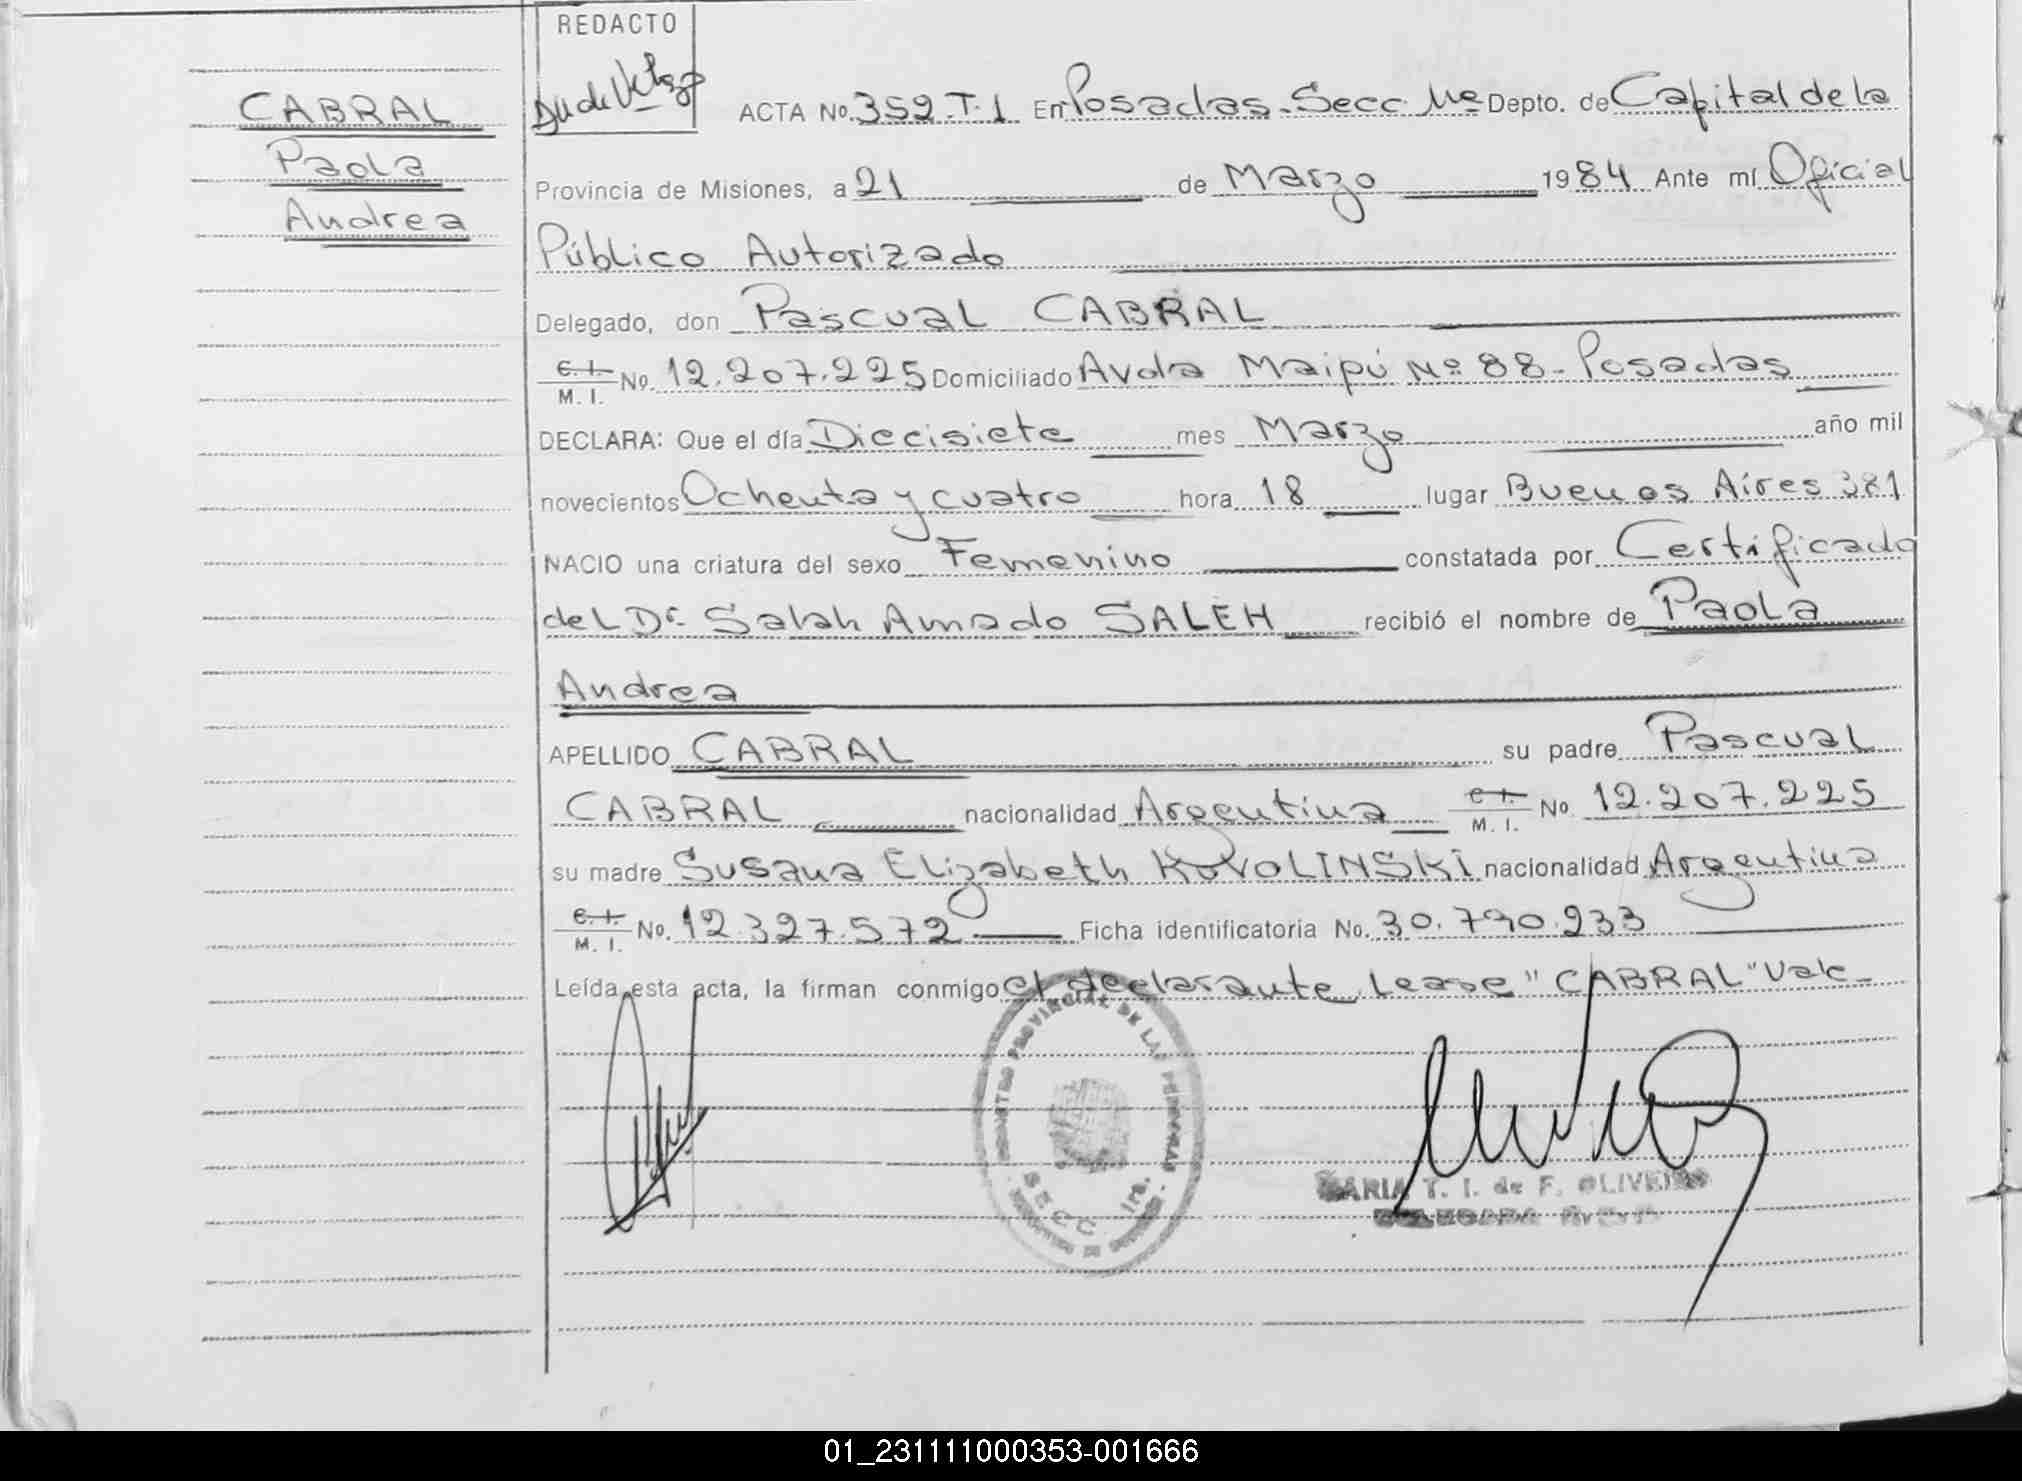 REDACTO
CABRAL
Paola
Andrea
ACTA No. 352.T.1 En Posadas. Secc. 1ra Depto. de Capital de la
Provincia de Misiones, a 21 de Marzo 1984 Ante mí Oficial
Público Autorizado
Delegado, don Pascual CABRAL
C. I. M. I. No. 12.207.225 Domiciliado Avda Maipú Nº 88- Posadas
DECLARA: Que el día Diecisiete mes Marzo año mil
novecientos Ochenta y cuatro hora 18 lugar Buenos Aires 381
NACIO una criatura del sexo Femenino constatada por Certificado
del Dr. Salah Amado SALEH recibió el nombre de Paola
Andrea
APELLIDO CABRAL su padre Pascual
CABRAL nacionalidad Argentina C. I. M. I. No. 12.207.225
su madre Susana Elizabeth KOVOLINSKI nacionalidad Argentina
C. I. M. I. No. 12.327.572 Ficha identificatoria No. 30.790.233
Leída esta acta, la firman conmigo el declarante. Lease "CABRAL" Vale-
PROVINCIAL DE LAS PERSONAS
SECC. 1ra.
MARIA T. I. de F. OLIVEIRA
01_231111000353-001666